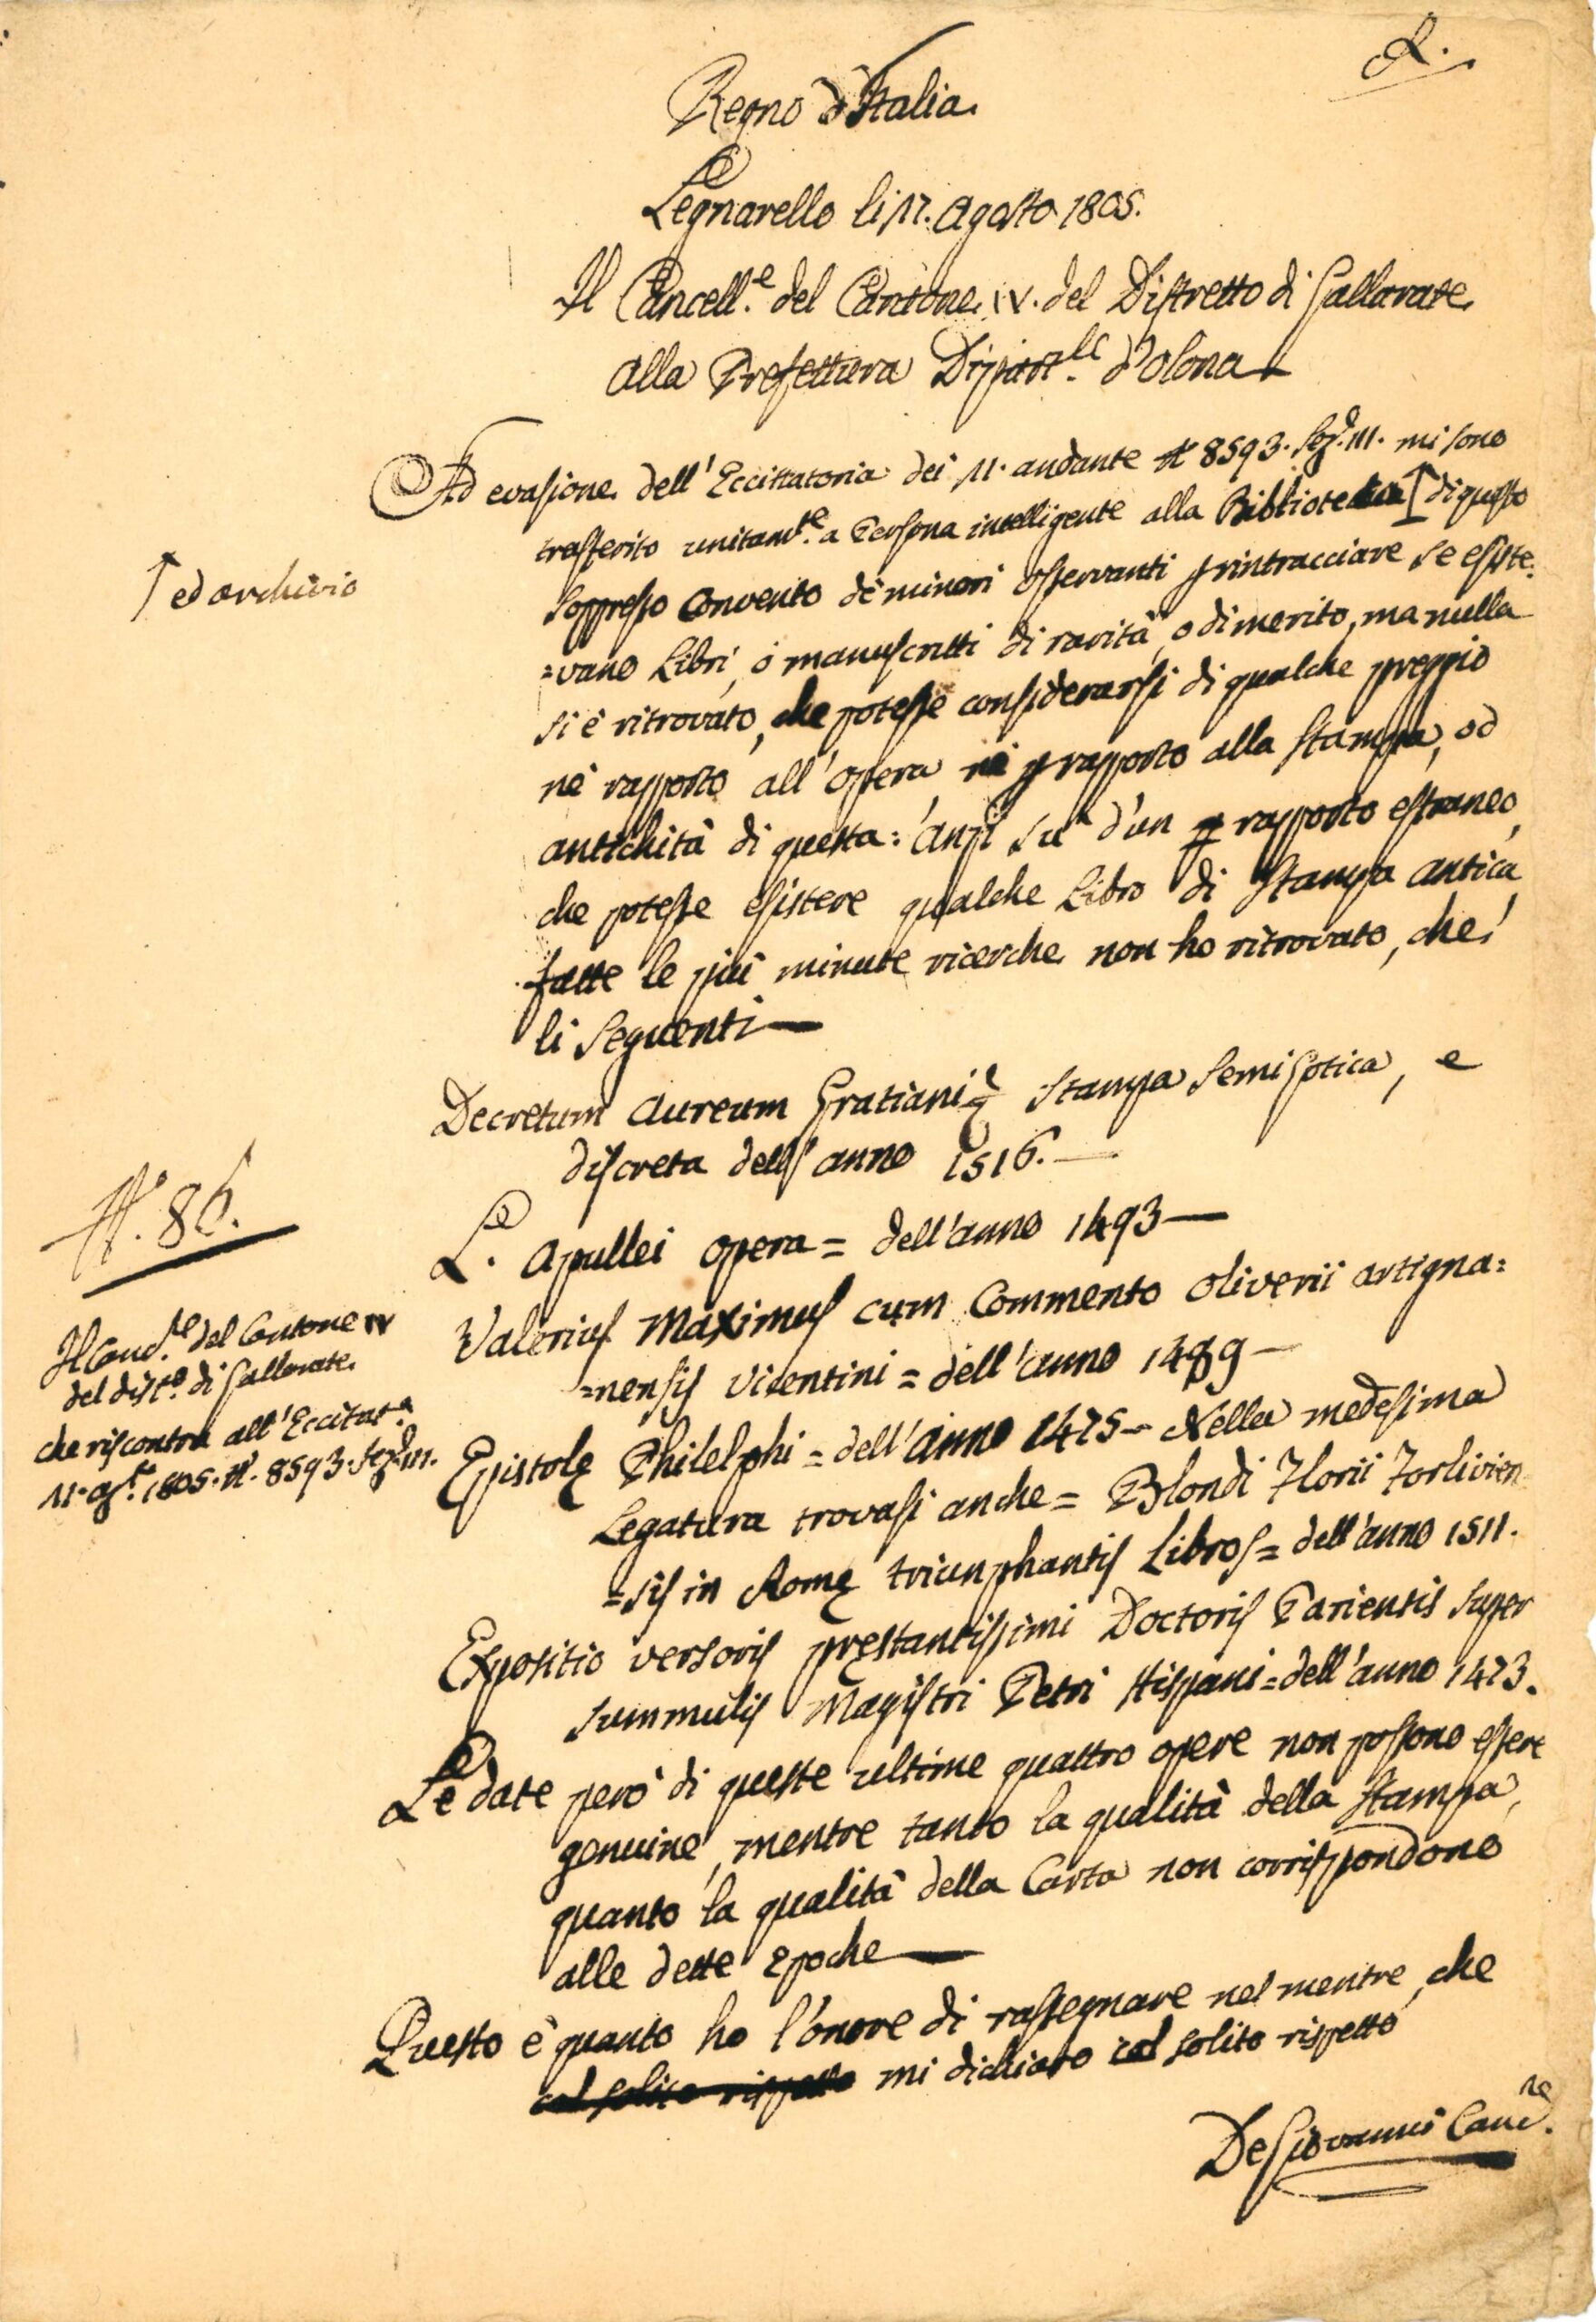 R.
Regno d'Italia
Legnarello li 17. Agosto 1805.
Il Cancell.e del Cantone IV. del Distretto di Gallarate
Alla Prefettura Dipart.le d'Olona
Ad evasione dell'Eccittatoria dei 11. andante N 8593. Sez. III. mi sono
trasferito unitam.te a Persona intelligente alla Biblioteca di questo
↑ ed archivio
soppresso Convento de minori osservanti p rintracciare se esiste:
=vano Libri, o manuscritti di rarità, o di merito, ma nulla
si è ritrovato, che potesse considerarsi di qualche preggio
nè rapporto all'opera nè p rapporto alla stampa, od
antichità di questa: Anzi su d'un p rapporto estraneo,
che potesse esistere qualche Libro di stampa antica
fatte le più minute ricerche non ho ritrovato, che
li seguenti
Decretum Aureum Gratiani = stampa semigotica, e
discreta dell'anno 1516.
L. Apullei opera = dell'anno 1493
Valerius Maximus cum Commento Oliverii artigna:
=nensis Vicentini = dell'anno 1489
Epistolę Philelphi = dell'anno 1475 - Nella medesima
Legatura trovasi anche = Blondi Florii Forlivien
=sis in Romę triunphantis Libros = dell'anno 1511.
Expositio versoris pręstantissimi Doctoris Pariensis super
summulis Magistri Petri Hispani = dell'anno 1473.
Le date però di queste ultime quattro opere non possono essere
genuine, mentre tanto la qualità della stampa,
quanto la qualità della Carta non corrispondono
alle dette Epoche
Questo è quanto ho l'onore di rassegnare nel mentre, che
col solito rispetto mi dichiaro col solito rispetto
De Giovanni Canc.re
N. 86.
Il Canc.re del Cantone IV
del dist.o di Gallarate
che riscontra all'Eccitat.a
11. ag.to 1805. N. 8593. Sez. III.